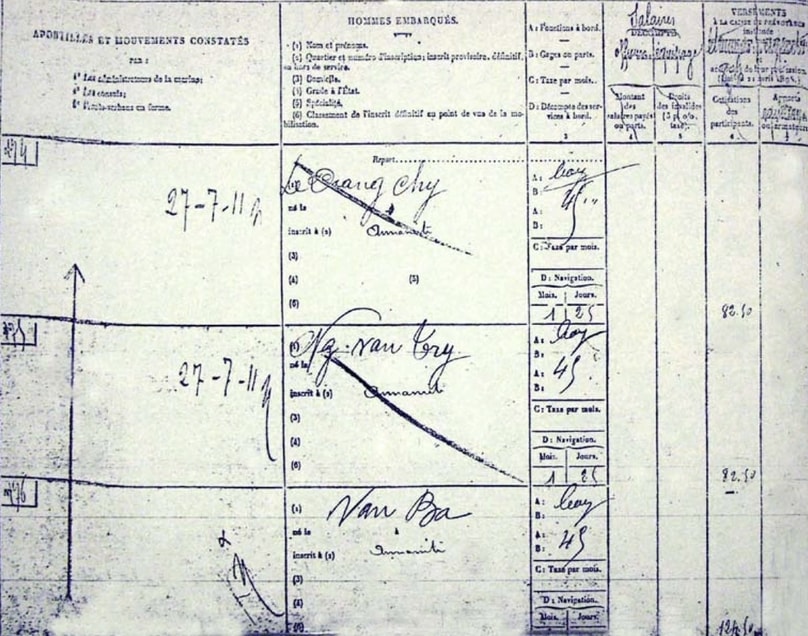 APOSTILLES ET MOUVEMENTS CONSTATÉS
PAR :
1° Les administrateurs de la marine;
2° Les consuls;
HOMMES EMBARQUÉS.
(1) Nom et prénoms.
(2) Quartier et numéro d'inscription; inscrit provisoire, définitif,
ou hors de service.
(3) Domicile.
(4) Grade à l'État.
(5) Spécialité.
(6) Classement de l'inscrit définitif au point de vue de la mo-
bilisation.
A : Fonctions à bord.
B : Gages ou parts.
C : Taxe par mois.
D : Décompte des ser-
vices à bord.
Salaires
DÉCOMPTE
Montant
des
salaires payés
ou parts.
Droits
des invalides
(3 p. 0/0.
taxe).
VERSEMENTS
À LA CAISSE DE PRÉVOYANCE
Cotisations
des
participants.
Apports
Report
27-7-11
Le Quang Chy
né le
inscrit à (2) Annamite
(3)
(4) (5)
(6)
A : boy
B : 45 "
A :
B :
C : Taxe par mois.
D : Navigation.
Mois. Jours.
1 25
82.50
27-7-11
(1) Ng. van Try
né le
inscrit à (2) Annamite
(3)
(4)
(6)
A : boy
B :
A : 45
B :
C : Taxe par mois.
D : Navigation.
Mois. Jours.
1 25
82.50
(1) Van Ba
né le à
inscrit à (2) Annamite
(3)
(4)
(6)
A : boy
B :
A :
B : 45
C : Taxe par mois.
D : Navigation.
Mois. Jours.